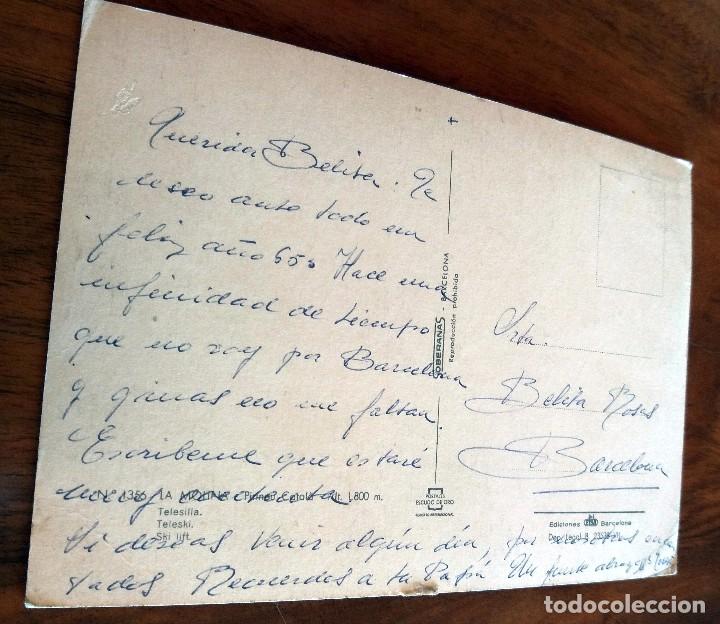 Querida Belita: Te
deseo ante todo un
feliz año 65. Hace una
infinidad de tiempo
que no voy por Barcelona
y ganas no me faltan.
Escribeme que estaré
muy contenta
Si deseas venir algún día, por nosotros
Recuerdos a tu Papá Un fuerte abrazo
Nº 1356 LA MOLINA Pirineo Catalá Alt. 1.800 m.
Telesilla.
Teleski.
Ski lift.
SOBERANAS - BARCELONA
Reproducción prohibida
POSTALES
ESCUDO DE ORO
Srta.
Belita Rosas
Barcelona
Ediciones Barcelona
Dep. Legal B.
todocoleccion